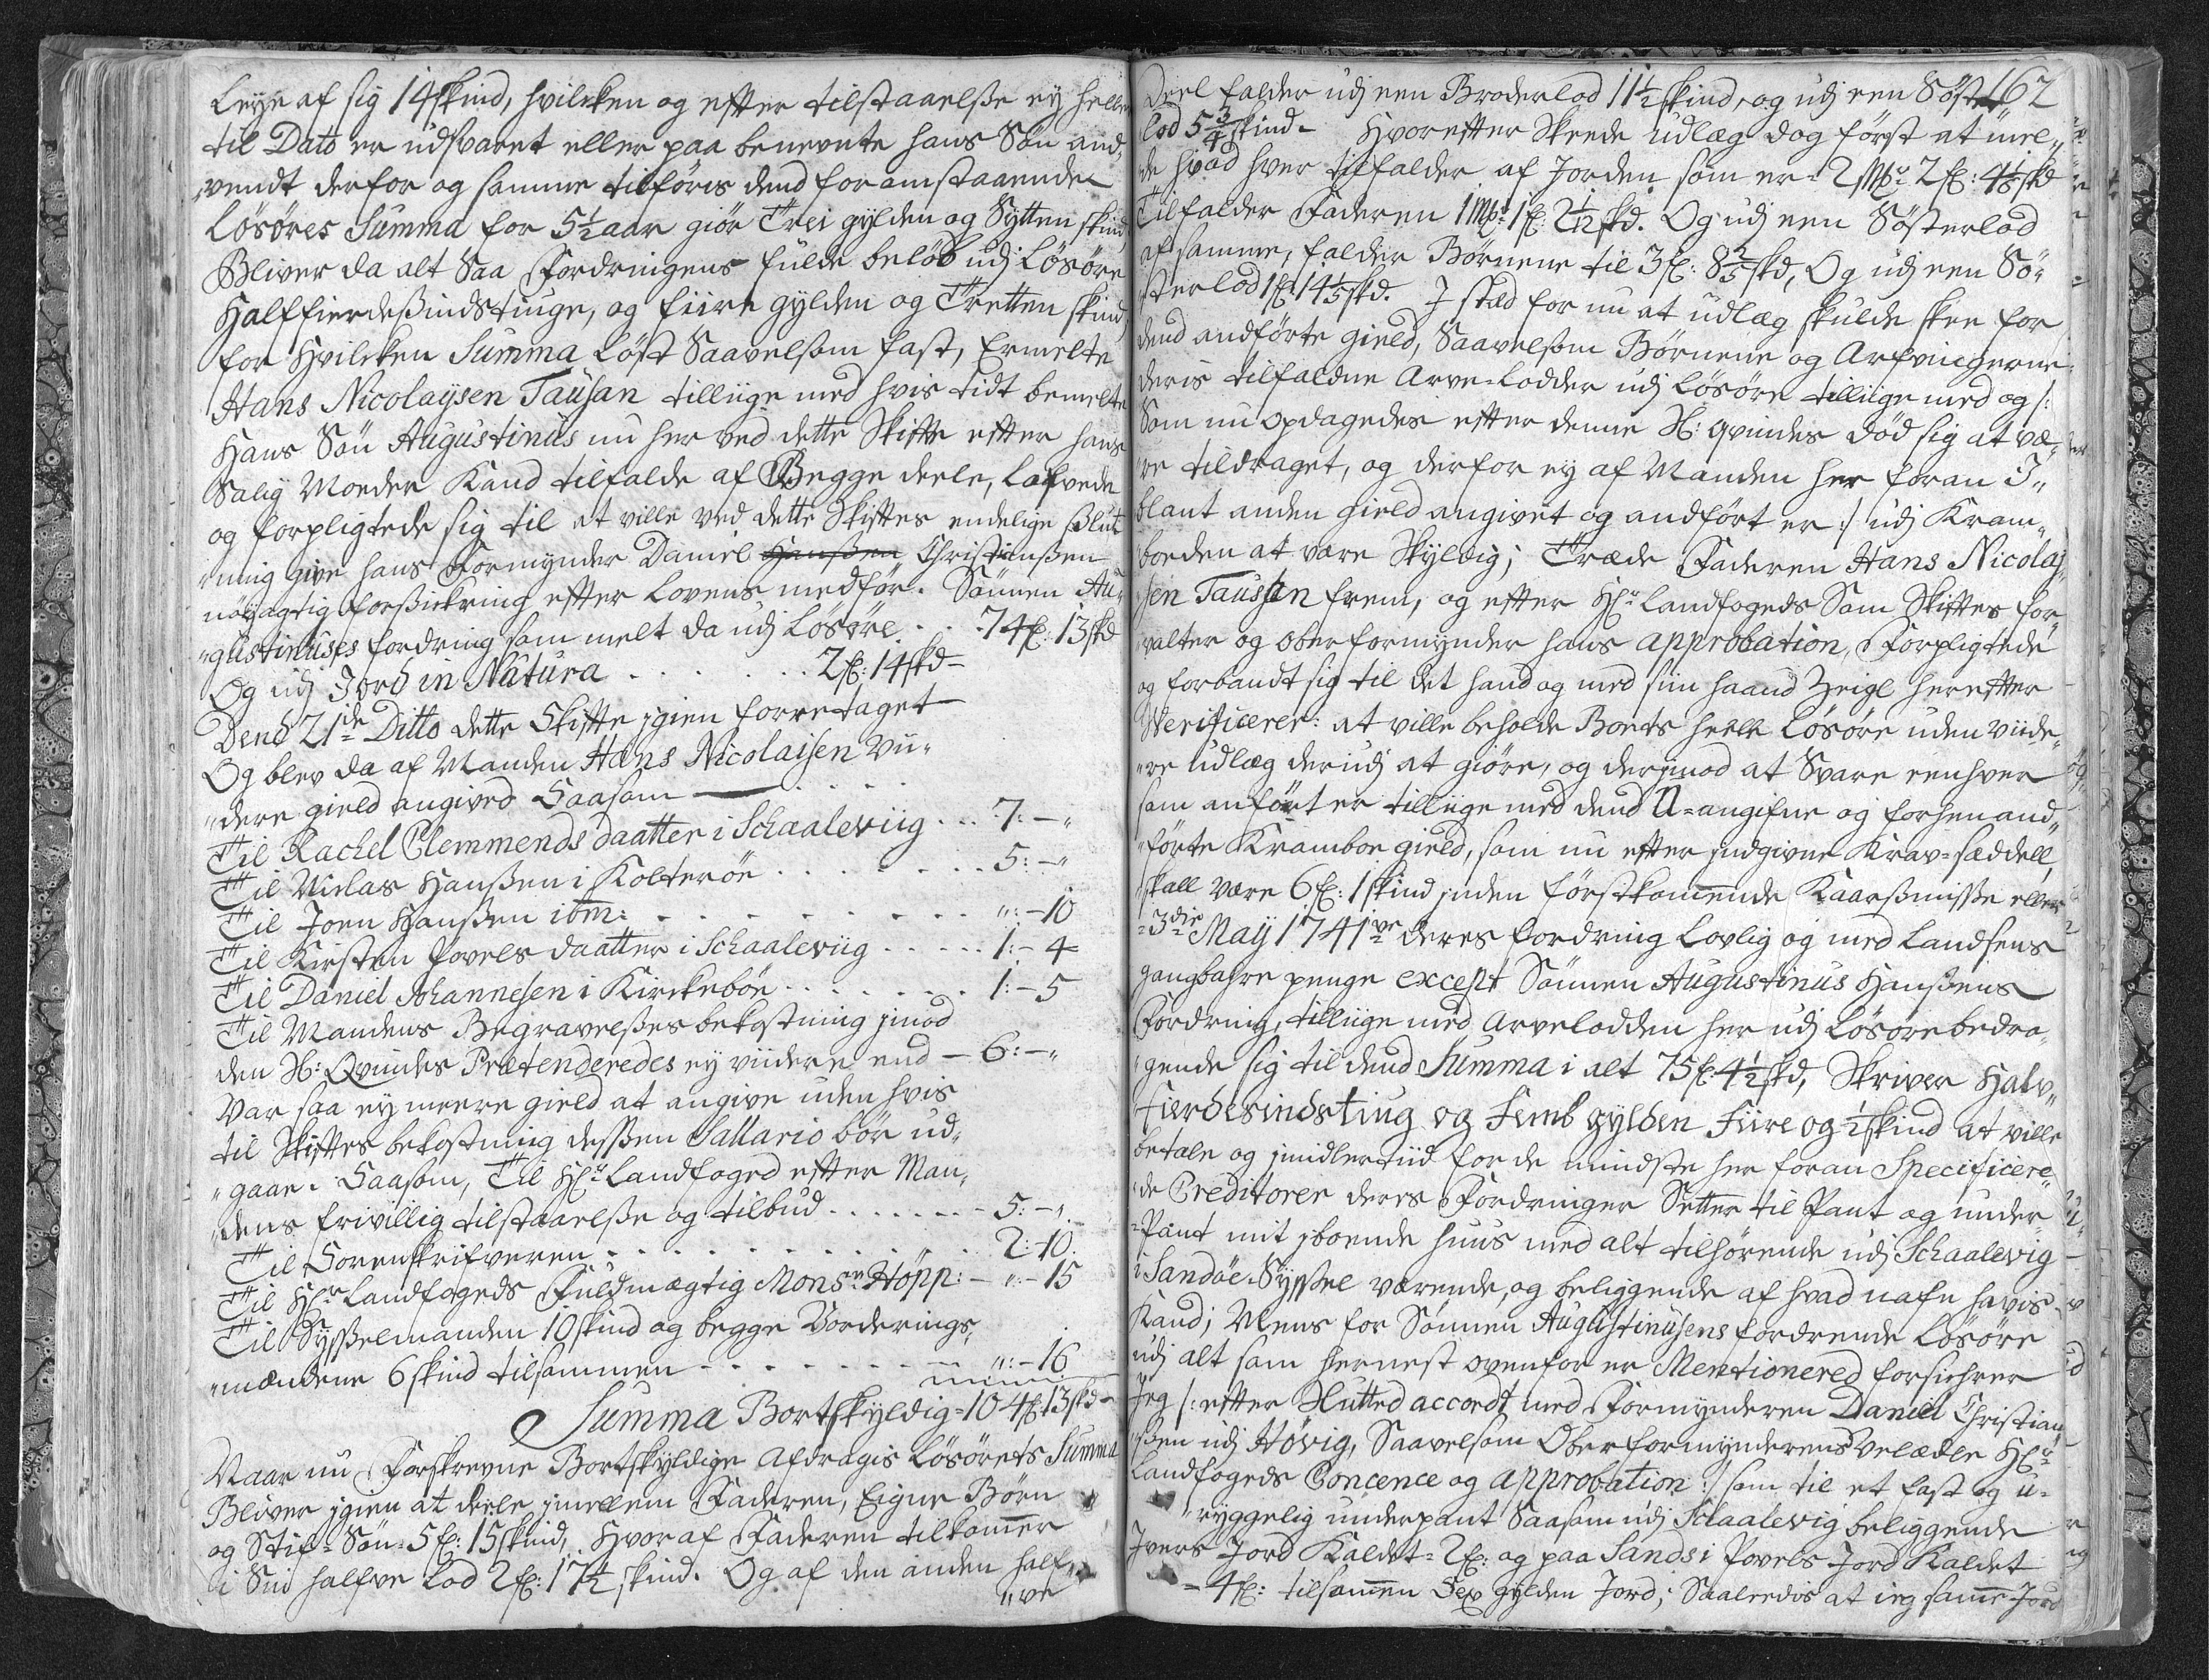 Leÿe af sig 14 skind, hvilcken og efter tilstaaelße eÿ heller
til Dato er udsvaret eller paa benevnte hans Søn and„
„vendt derfor og samme tilføris dend foranstaaende
Løsøres Summa for 5½ aar giør Trei gÿlden og Sÿtten skind
Bliver da alt Saa Fordringens fulde beløb udj Løsøre
Halffierdeßindstiuge, og fiire gÿlden og Tretten skind,
for Hvilcken Summa Løst Saavelsom fast, Ermelte
Hans Nicolaÿsen Taüsan tilliige med hvis tidt bemelte
Hans Søn Augustinüs nu her ved dette Skifte efter hans
Salig Moeder Kand tilfalde af Begge deele, Lofvede
og forpligtede sig til at ville ved dette Skiftes endelige Slut
„ning give hans Formÿnder Daniel Hanßen Christianßen
nøÿagtig forsickring efter Lovens medför. Sønnen Au„
„gustinüses fordring som melt da udj Løsøre . . . 74 f: 13 skd
Og udj Jord in Natura . . . . . . . 2 f: 14 skd
Dend 21de Ditto dette Skifte igien foretaget
Og blev da af Manden Hans Nicolaisen Vii„
„dere gield angived Saasom
Til Rachel Clemmends daatter i Schaaleviig . . . 7: – „
Til Niclas Hanßen i Kolterøe . . . . . . . . 5: – „
Til Joen Hanßen ibm: . . . . . . . . . . „: – 10
Til Kirsten Povels daatter i Schaaleviig . . . . . 1: – 4
Til Daniel Johannesen i Kirckebøe . . . . . . . 1: – 5
Til Mandens Begravelßes bekostning imod
den Sl: Qvindes Prætenderedes eÿ viidere end – 6: – „
Var saa eÿ meere gield at angive uden hvis
til Skiftes bekostning deßen Sallario bør ud„
„gaae. Saasom, Til Hr: Landfoged efter Man„
„dens frivillig tilstaaelße og tilbud . . . . . . . 5: – „
Til Sorenskrifveren . . . . . . . . . . . 2: 10.
Til Hr: Landfogeds Fuldmægtig Monsr: Höpp: – „: – 15
Til Sÿsselmanden 10 skind og begge Vorderings„
„mændene 6 skind tilsammen . . . . . . . „: – 16
Summa Bortskÿldig = 104 f: 13 skd
Naar nu Forskrevne Bortskÿldige Afdragis Løsørets Summa
Bliver igien at deele imellem Faderen, Eigne Børn
og Stif-Søn = 5 f: 15 skind, Hvoraf Faderen tilkommer
i Sin halfve Lod 2 f: 17½ skind. Og af den anden half„
„ve
162
Deel falder udj een Broderlod 11½ skind, og udj een Søster
lod 5¾ skind – Hvorefter Skeede udlæg dog først at mel„
„de hvad hver tilfalder af Jorden som er = 2 Mr: 2 f: 4⅙ skd
Tilfalder Faderen 1 Mr: 1 f: 2 1/12 skd. Og udj een Søsterlod
af samme, falder Børnene til 3 f: 8⅖ skd, Og udj een Sø„
sterlod 1 f: 14⅕ skd. I stæd for nu at udlæg skulde skee for
dend andførte gield, Saavelsom Børnene og Arfvingerne
deris tilfaldne Arve-Lodder udj Løsøre tilliige med og /:
Som nu opdagedes efter denne Sl: qvindes død sig at væ„
„re tildraget, og derfor eÿ af Manden her foran I„
blant anden gield angivet og andført er :/ udj Kram„
boeden at være Skÿldig; Træde Faderen Hans Nicolaj
„sen Taussan frem, og efter Hr: Landfogeds Som Skiftes for„
„valter og oberformÿnder hans approbation, Forpligtede
og forbandt sig til det hand og med sin haand Zeigl herefter
Verificerer: at ville beholde Boets heele Løsøre uden viide„
„re udlæg derudj at giøre, og derimod at Svare eenhver
som anført er tilliige med dend U-angifne og forhen and„
„førte Kramboe gield, som nu efter indgivne Krav-sæddell,
skall være 6 f: 1 skind inden førstkommende Kaarßmisse eller
= 3die Maÿ 1741ve deres fordring Lovlig og med Landsens
gangbahre penge except Sønnen Augustinus Hanßens
Fordring, tilliige med Arvelodden her udj Løsøre bedra„
„gende sig til dend Summa i alt 75 f: 4½ skd, Skriver Halv„
Fierdesindstiug og Femb gÿlden Fiire og ½ skind at ville
betale og imidlertiid for de mindste her foran Specificere„
„de Creditorer deres Fordringer Setter til Pant og under
= Pant mit iboende huus med alt tilhørende udj Schaalevig
i Sandöe Sÿßel værende, og beliggende af hvad nafn havis
Kand; Mens for Sønnen Augustinüsens fordrende Løsøre
udj alt som hernest ovenfor er Mentionered forsichrer
Jeg /: efter Slutted accordt med Formÿnderen Daniel Christian„
„ßen udj Høvig, Saavelsom Oberformÿnderens velædle Hr:
Landfogeds Concence og approbation :/ som til et fast og u„
„rÿggelig underpant Saasom udj Schaalevig beliggende
Ivers Jord Kaldet = 2 f: og paa Sands i Povels Jord Kaldet
= 4 f: tilsammen Sex gÿlden Jord; Saaledis at ieg samme Jord